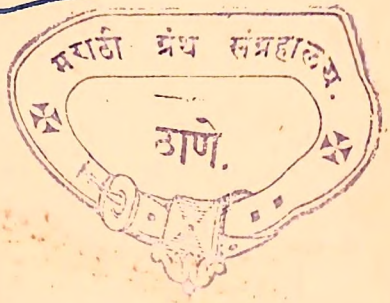 मराठी ग्रंथ संग्रहालय.
ठाणे.